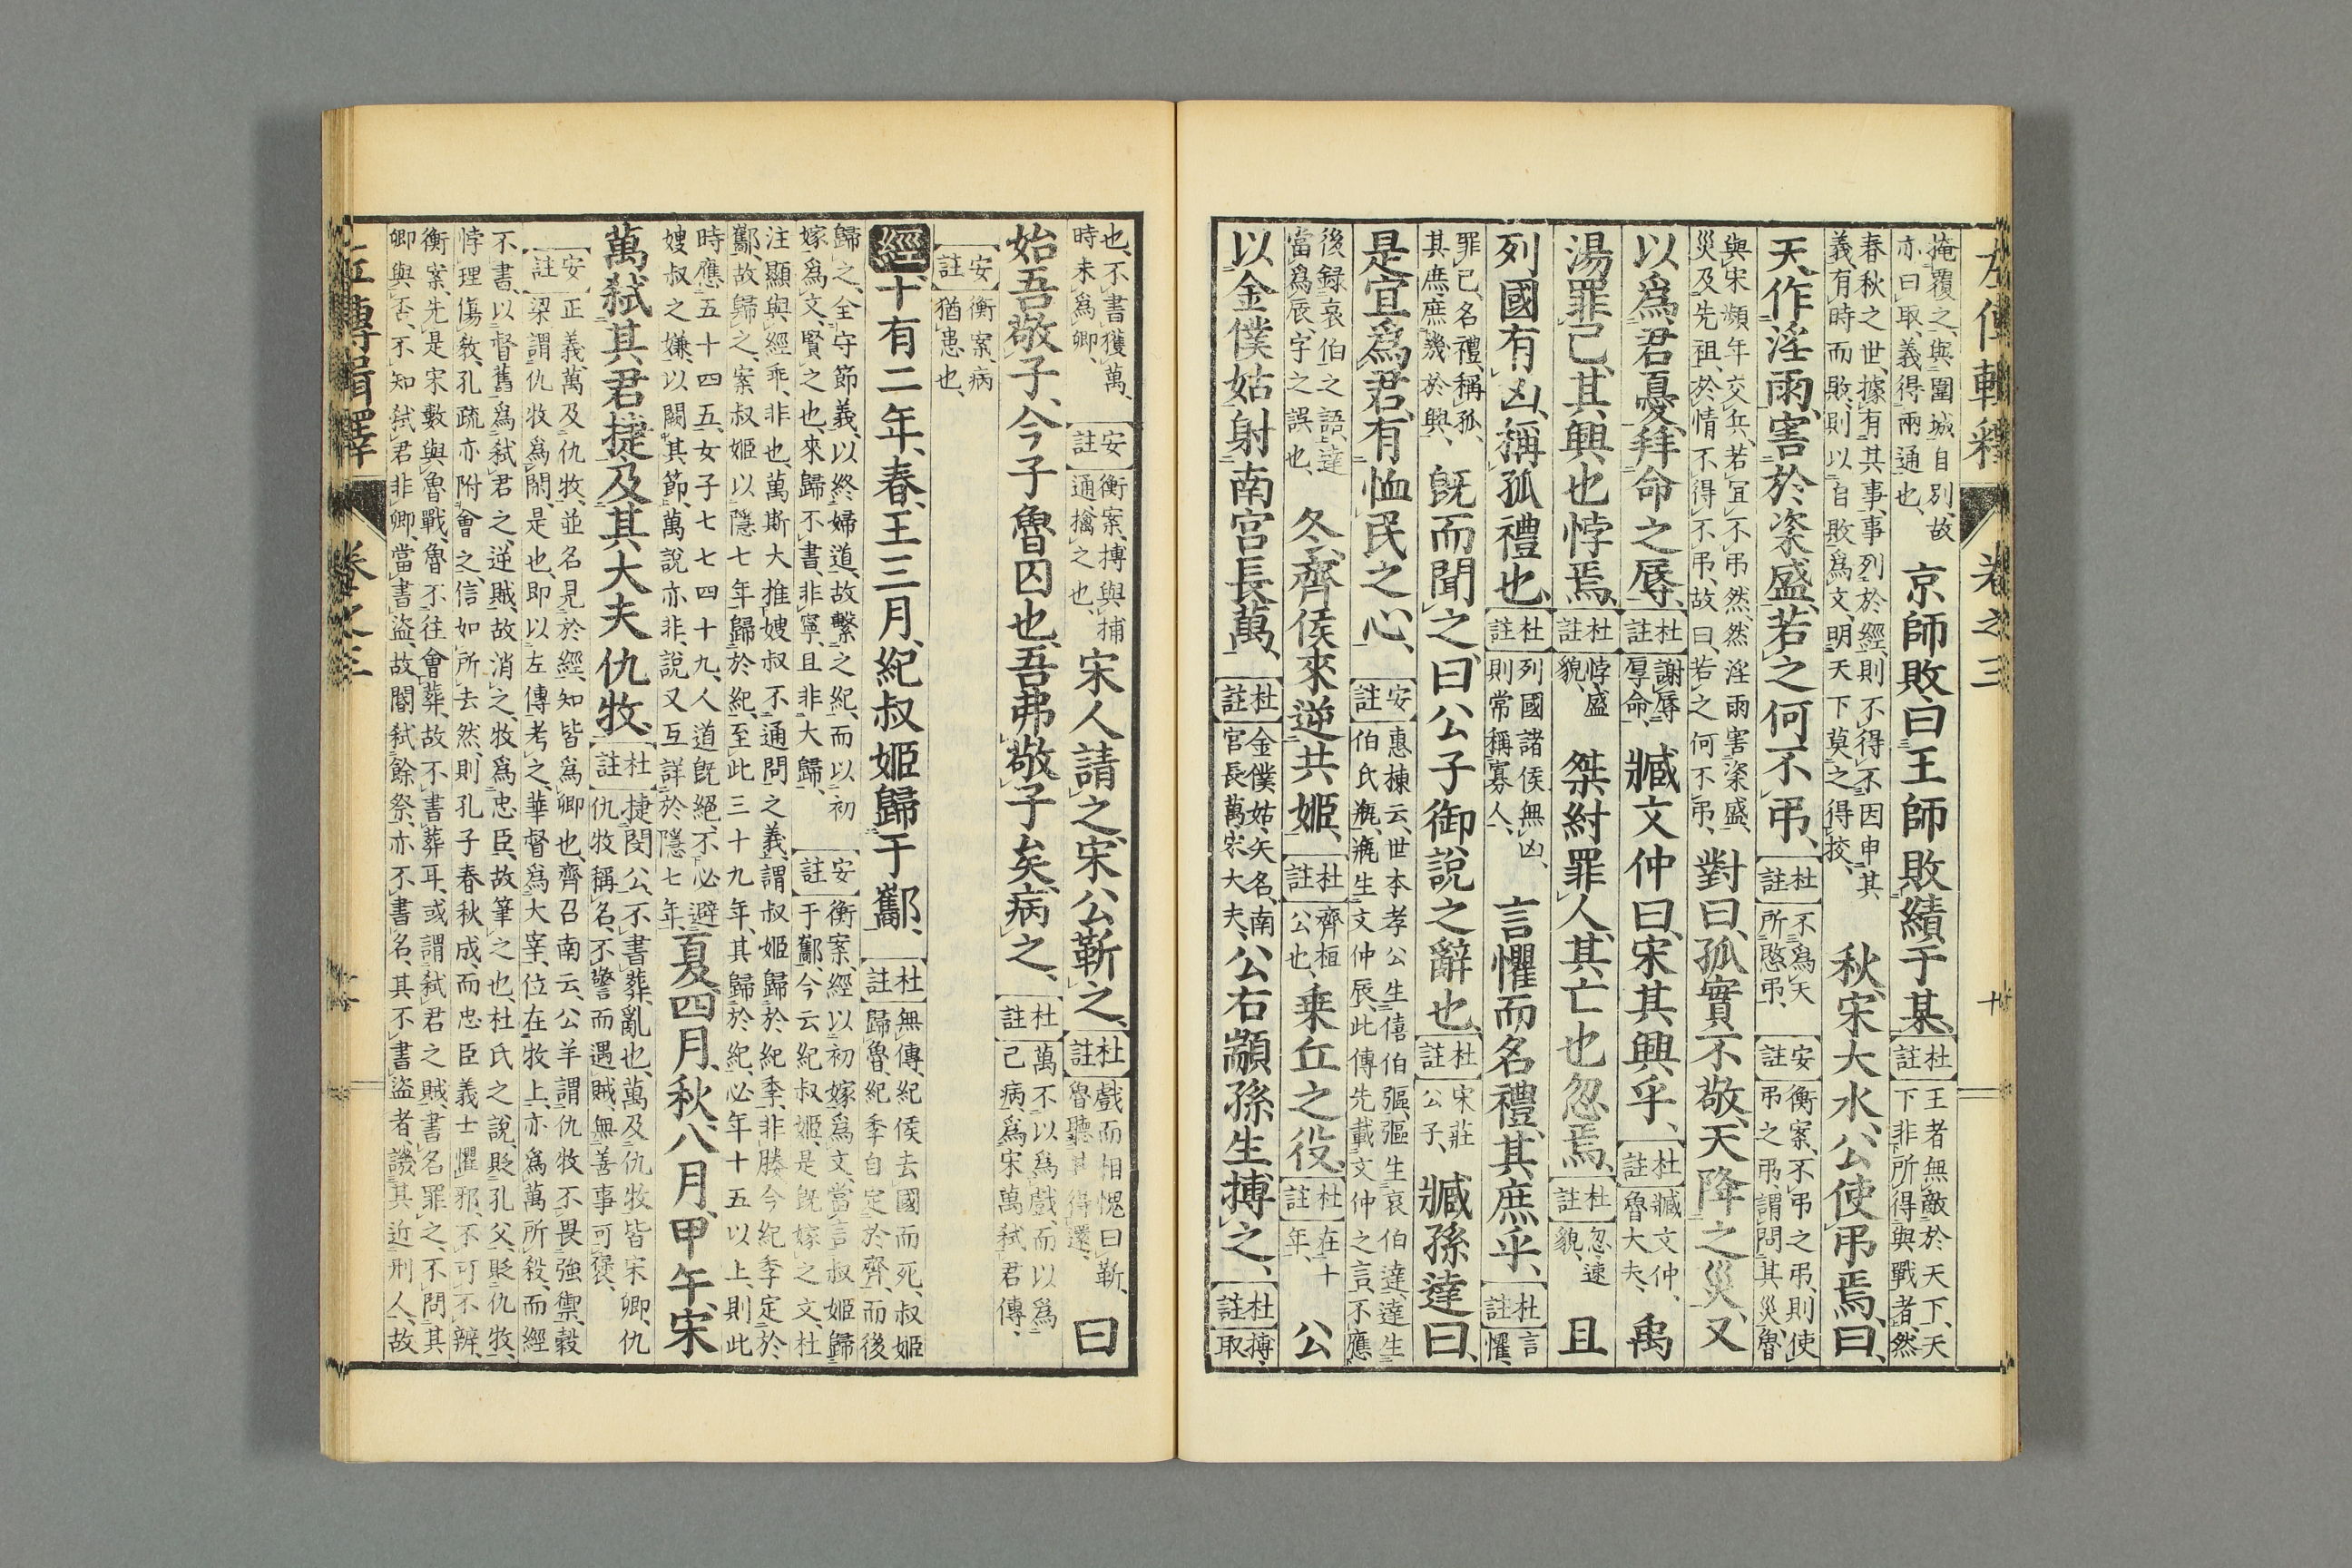 左傳輯釋 卷之三 十
掩覆之、與圍城自別、故
亦曰取、義得兩通也、
京師敗、曰王師敗績于某、
杜註
王者無敵於天下、天
下非所得與戰者、然
春秋之世、據有其事、事列於經、則不得不因申其
義、有時而敗、則以自敗爲文、明天下莫之得挍、
秋、宋大水、公使弔焉、曰、
天作淫雨、害於粢盛、若之何不弔、
杜註
不爲天
所愍弔、
安註
衡案、不弔之弔、則使
弔之弔、謂問其災、魯
與宋頻年交兵、若宜不弔然、然淫雨害粢盛、
災及先祖、於情不得不弔、故曰、若之何不弔、
對曰、孤實不敬、天降之災、又
以爲君憂、拜命之辱、
杜註
謝辱
厚命、
臧文仲曰、宋其興乎、
杜註
臧文仲、
魯大夫、
禹
湯罪己、其興也悖焉、
杜註
悖、盛
貌、
桀紂罪人、其亡也忽焉、
杜註
忽、速
貌、
且
列國有凶、稱孤禮也、
杜註
列國諸侯、無凶、
則常稱寡人、
言懼而名禮、其庶乎、
杜註
言
懼、
罪己、名禮、稱孤、
其庶、庶幾於興、
既而聞之、曰公子御說之辭也、
杜註
宋莊
公子、
臧孫達曰、
是宜爲君、有恤民之心、
安註
惠棟云、世本孝公生僖伯彄、彄生哀伯達、達生
伯氏瓶、瓶生文仲辰、此傳先載文仲之言、不應
後録哀伯之語、達
當爲辰、字之誤也、
冬、齊侯來逆共姬、
杜註
齊桓
公也、
乘丘之役、
杜註
在十
年、
公
以金僕姑射南宮長萬、
杜註
金僕姑、矢名、南
宮長萬、宋大夫、
公右歂孫生搏之、
杜註
搏、
取
也、不書獲、萬、
時未爲卿、
安註
衡案、搏與捕
通、擒之也、
宋人請之、宋公靳之、
杜註
戲而相愧曰靳、
魯聽其得還、
曰
始吾敬子、今子魯囚也、吾弗敬子矣、病之、
杜註
萬不以爲戲、而以爲
己病、爲宋萬弑君傳、
安註
衡案、病
猶患也、
經十有二年、春、王三月、紀叔姬歸于酅、
杜註
無傳、紀侯去國而死、叔姬
歸魯、紀季自定於齊、而後
歸之、全守節義、以終婦道、故繫之紀、而以初
嫁爲文、賢之也、來歸不書、非寧、且非大歸、
安註
衡案、經以初嫁爲文、當言叔姬歸
于酅、今云紀叔姬、是既嫁之文、杜
注顯與經乖、非也、萬斯大推嫂叔不通問之義、謂叔姬歸於紀季、非媵、今紀季定於
酅、故歸之、案叔姬以隱七年歸於紀、至此三十九年、其歸於紀、必年十五以上、則此
時應五十四五、女子七七四十九、人道既絕、不必避
嫂叔之嫌、以闕其節、萬說亦非、說又互詳於隱七年、
夏四月、秋、八月、甲午、宋
萬弑其君捷、及其大夫仇牧、
杜註
捷、閔公、不書葬、亂也、萬及仇牧皆宋卿、仇
仇牧稱名、不警而遇賊、無善事可褒、
安註
正義、萬及仇牧、並名見於經、知皆爲卿也、齊召南云、公羊謂仇牧不畏強禦、穀
梁謂仇牧爲閑、是也、即以左傳考之、華督爲大宰、位在牧上、亦爲萬所殺、而經
不書、以督舊爲弑君之逆賊、故消之、牧爲忠臣、故筆之也、杜氏之說、貶孔父、貶仇牧、
悖理傷敎、孔疏亦附會之、信如所去然、則孔子春秋成、而忠臣義士懼邪、不可不辨、
衡案、先是宋數與魯戰、魯不往會葬、故不書葬耳、或謂弑君之賊、書名罪之、不問其
卿與否、不知弑君非卿、當書盜、故閽弑餘祭、亦不書名、其不書盜者、譏其近刑人、故
左傳輯釋 卷之三